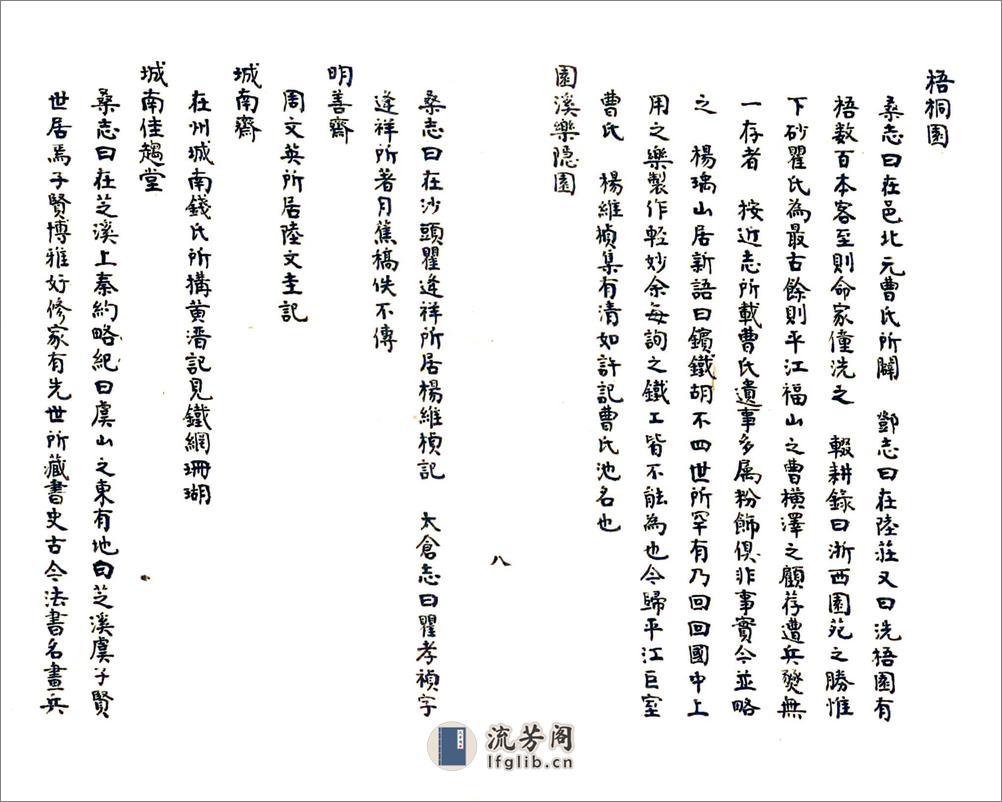 梧桐園
桑志曰在邑北元曹氏所闢　鄧志曰在陸莊又曰洗梧園有
梧数百本客至則命家僮洗之　輟耕錄曰浙西園苑之勝惟
下砂瞿氏為最古餘則平江福山之曹橫澤之顧荐遭兵燹無
一存者　按近志所載曹氏遺事多属粉飾俱非事實今並略
之　楊瑀山居新語曰鑌鐵胡不四世所罕有乃回回國中上
用之樂製作輕妙余每詢之鐵工皆不能為也今歸平江巨室
曹氏　楊維楨集有清如許記曹氏池名也
園溪樂隐園
桑志曰在沙頭瞿逢祥所居楊維楨記　太倉志曰瞿孝禎字
逢祥所著月蕉稿佚不傳
明善齋
周文英所居陸文圭記
城南齋
在州城南錢氏所搆黄溍記見鐵網珊瑚
城南佳趣堂
桑志曰在芝溪上秦約略紀曰虞山之東有地曰芝溪虞子賢
世居焉子賢博雅好修家有先世所藏書史古今法書名畫兵
八
流芳阁
lfglib.cn